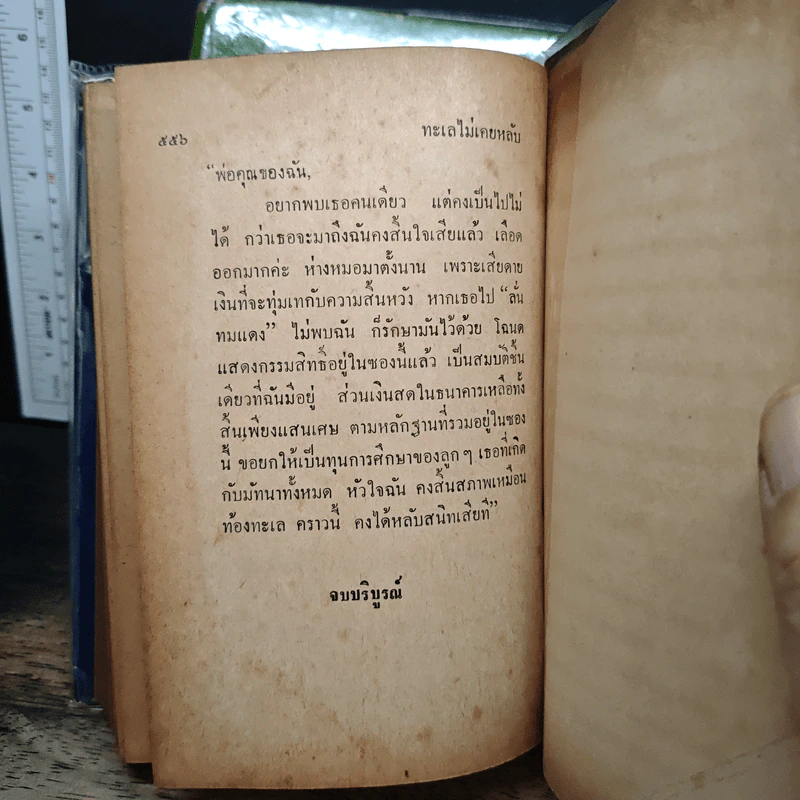 ๕๕๖
ทะเลไม่เคยหลับ
“พ่อคุณของฉัน,
อยากพบเธอคนเดียว แต่คงเป็นไปไม่
ได้ กว่าเธอจะมาถึงฉันคงสิ้นใจเสียแล้ว เลือด
ออกมากค่ะ ห่างหมอมาตั้งนาน เพราะเสียดาย
เงินที่จะทุ่มเทกับความสิ้นหวัง หากเธอไป “ลั่น
ทมแดง” ไม่พบฉัน ก็รักษามันไว้ด้วย โฉนด
แสดงกรรมสิทธิ์อยู่ในซองนี้แล้ว เป็นสมบัติชิ้น
เดียวที่ฉันมีอยู่ ส่วนเงินสดในธนาคารเหลือทั้ง
สิ้นเพียงแสนเศษ ตามหลักฐานที่รวมอยู่ในซอง
นี้ ขอยกให้เป็นทุนการศึกษาของลูก ๆ เธอที่เกิด
กับมัทนาทั้งหมด หัวใจฉัน คงสิ้นสภาพเหมือน
ท้องทะเล คราวนี้ คงได้หลับสนิทเสียที”
จบบริบูรณ์
6
5
4
3
2
1